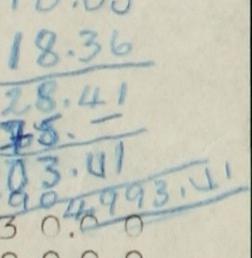 18.36
28.41
75.—
03.41
90 4993.41
30.00